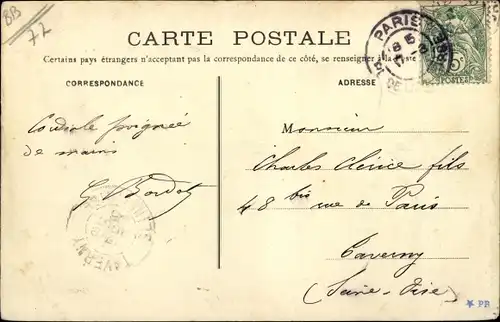 BB
72
CARTE POSTALE
Certains pays étrangers n'acceptant pas la correspondance de ce côté, se renseigner à la Poste
CORRESPONDANCE
ADRESSE
PARIS
Cordiale poignée
de mains
G. Bordot
Monsieur
Charles Clérice fils
48 bis rue de Paris
Taverny
(Seine-Oise)
TAVERNY
5c
POSTES
* PB